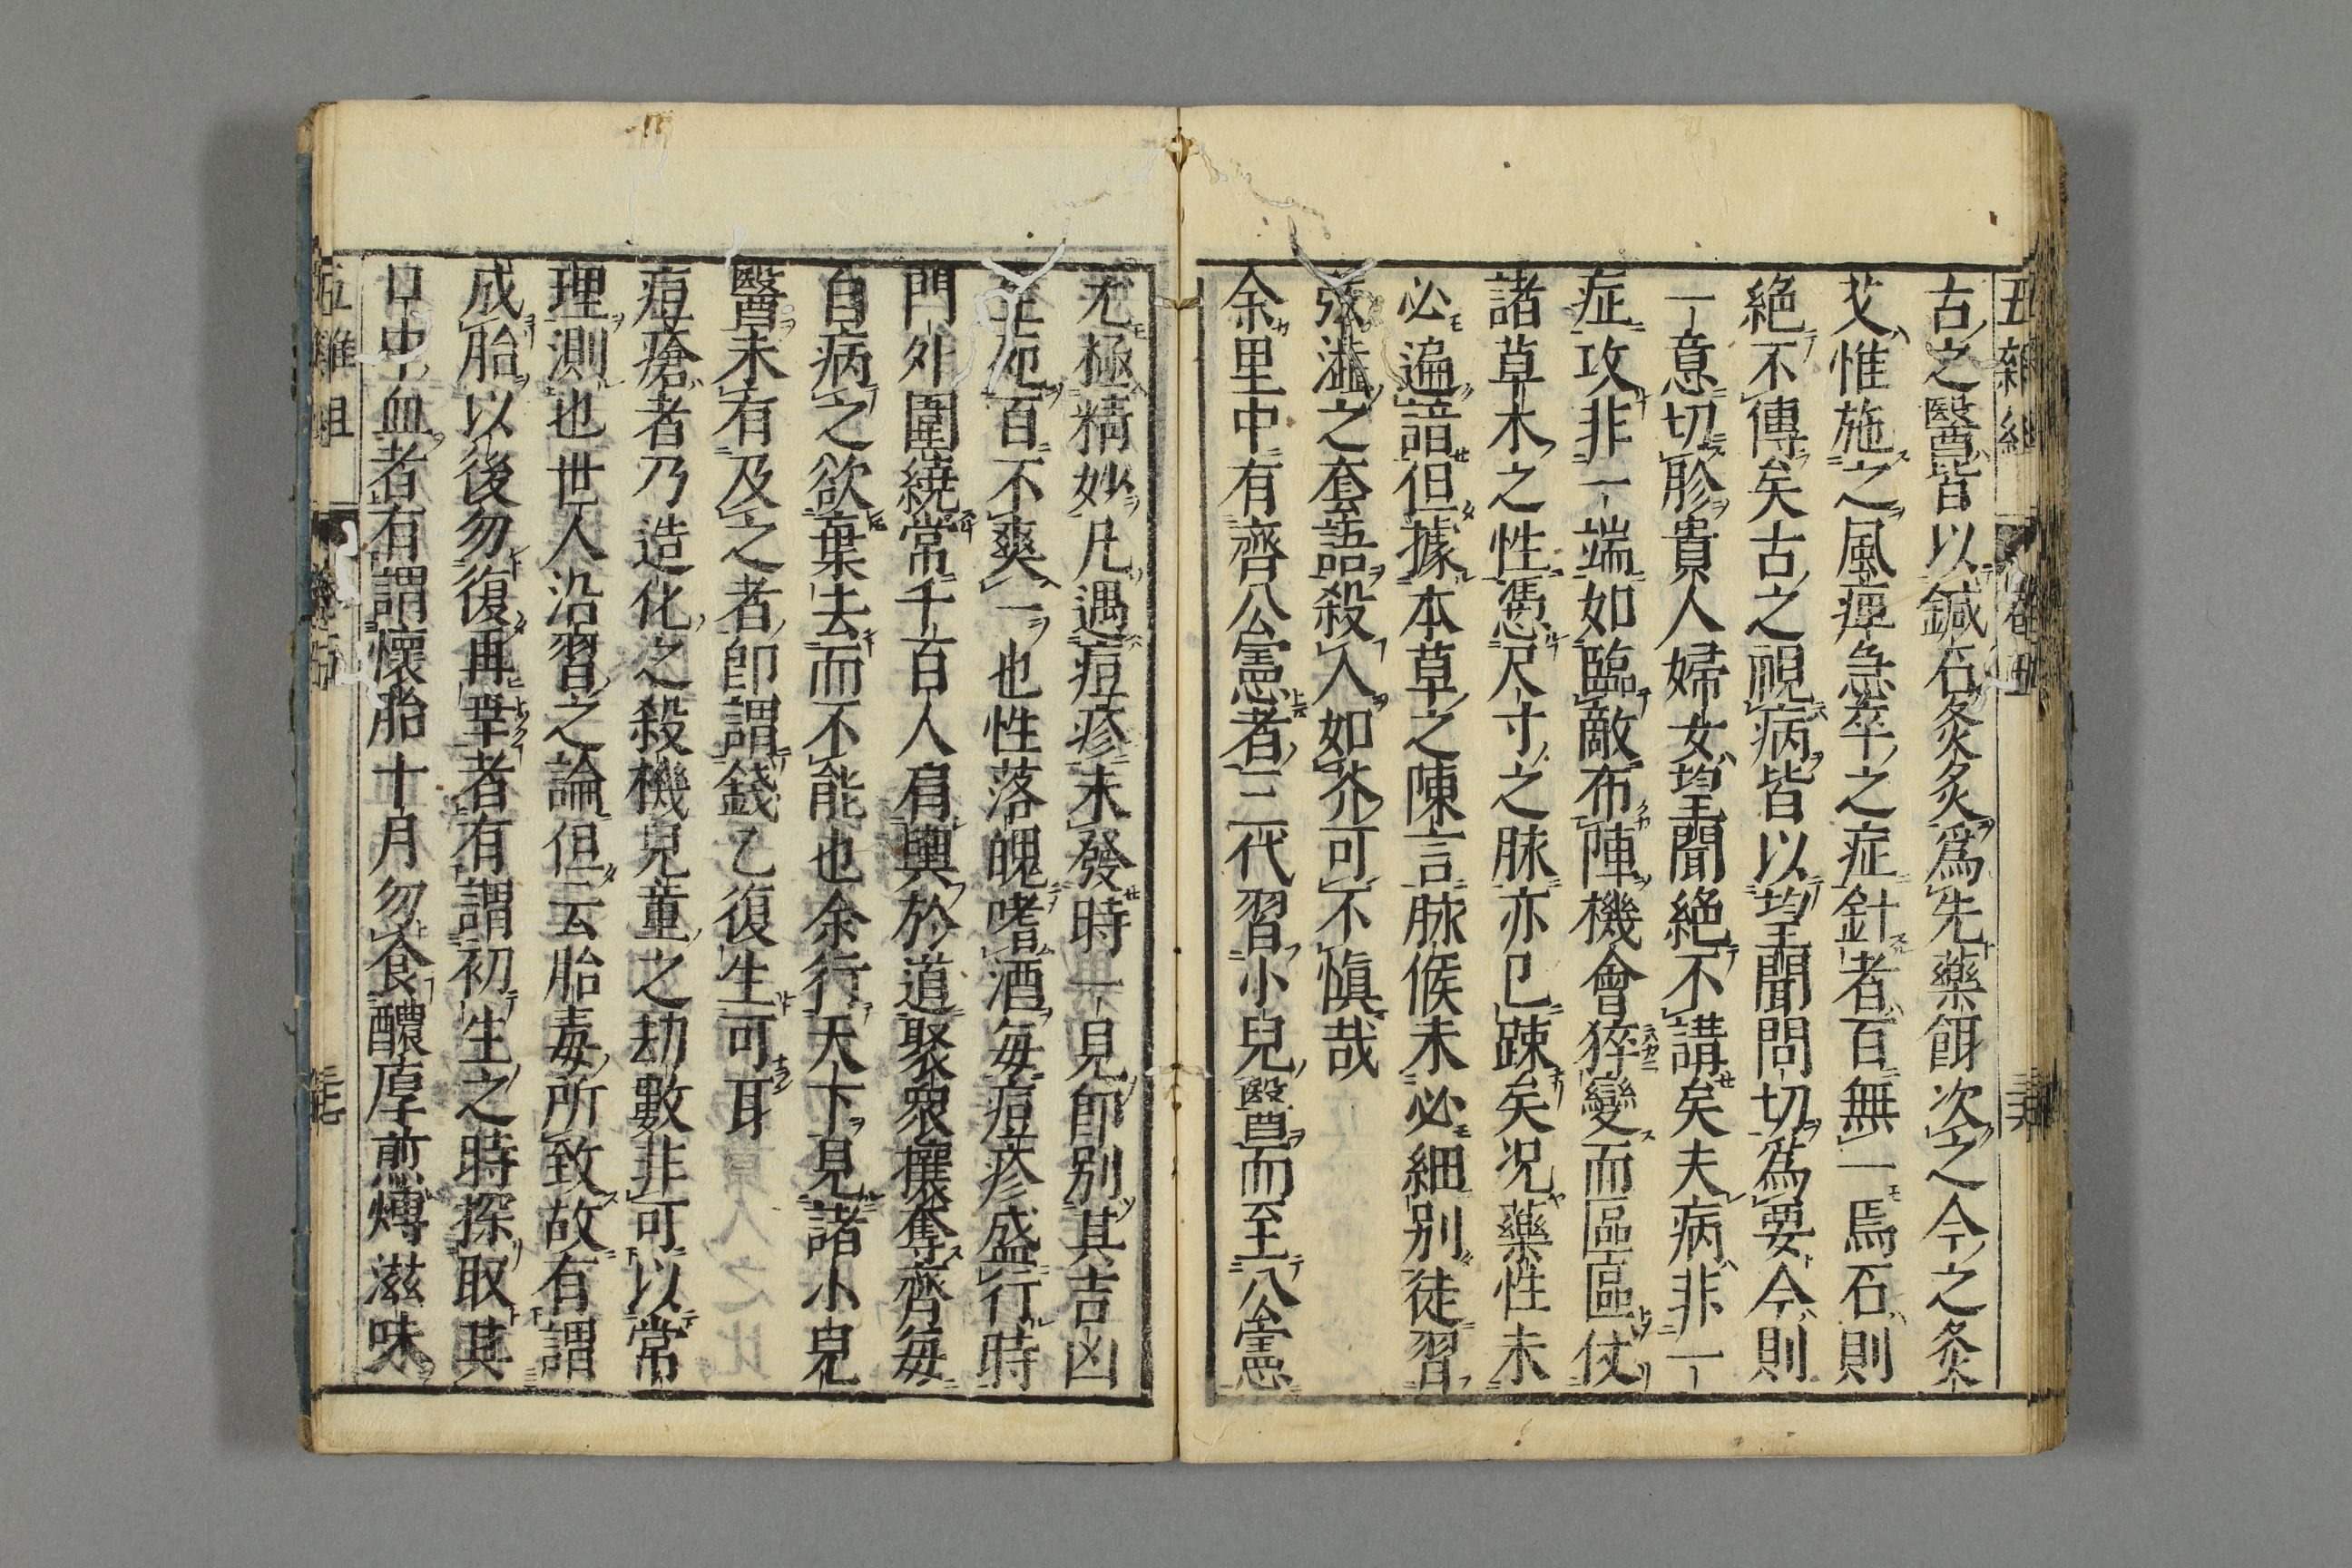 五雜組 卷五
古之醫皆以鍼石灸炙爲先藥餌次之今之灸
艾惟施之風痺急卒之症針者百無一焉石則
絶不傳矣古之視病皆以望聞問切爲要今則
一意切脉貴人婦女望聞絶不講矣夫病非一
症攻非一端如臨敵布陣機會猝變而區區仗
諸草木之性憑尺寸之脉亦已踈矣况藥性未
必遍諳但據本草之陳言脉候未必細别徒習
張瀊之套語殺人如芥可不愼哉
余里中有齊公憲者三代習小兒醫而至公憲
尤極精妙凡遇痘疹未發時一見即别其吉凶
生死百不爽一也性落魄嗜酒毎痘疹盛行時
門外圍繞常千百人肩輿於道聚衆攘奪齊毎
自病之欲棄去而不能也余行天下見諸小兒
醫未有及之者即謂錢乙復生可耳
痘瘡者乃造化之殺機兒童之劫數非可以常
理測也世人沿習之論但云胎毒所致故有謂
成胎以後勿復再㚔者有謂初生之時探取其
口中血者有謂懷胎十月勿食醲厚煎煿滋味
五雜組